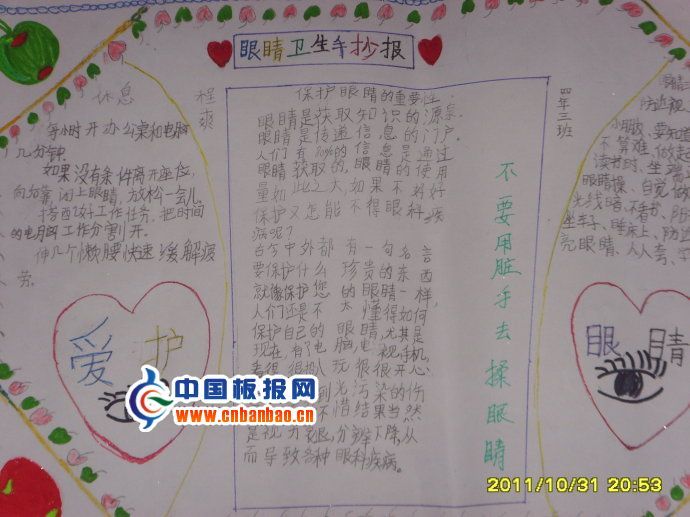 眼睛卫生手抄报
休息
程爽
每小时开办公桌和电脑
几分钟.
如果没有条件离开座位,
向后靠,闭上眼睛,放松一会儿.
搭配好工作任务,把时间
的电脑工作分割开.
伸几个懒腰快速缓解疲
劳.
爱护
保护眼睛的重要性:
眼睛是获取知识的源泉.
眼睛是传递信息的门户.
人们有70%的信息是通过
眼睛获取的,眼睛的使用
量如此之大,如果不好好
保护又怎能不得眼科疾
病呢?
古今中外都有一句名言
要保护什么珍贵的东西
就像保护您的眼睛一样,
人们还是不太懂得如何
保护自己的眼睛,尤其是
现在,有电脑,电视,手机,
看得很
玩得很开心:
到光污染的伤
不惜结果当然
是视力
下降从
而导致各种眼科疾病.
不要用脏手去揉眼睛
四年三班
防近视
小朋友,要知道
不算难,做起
读书时,坐端
眼睛操,自觉做
光线暗,不看书,阳
坐车子,睡床上,防边
亮眼睛,人人夸,
眼睛
中国板报网
www.cnbanbao.cn
2011/10/31 20:53